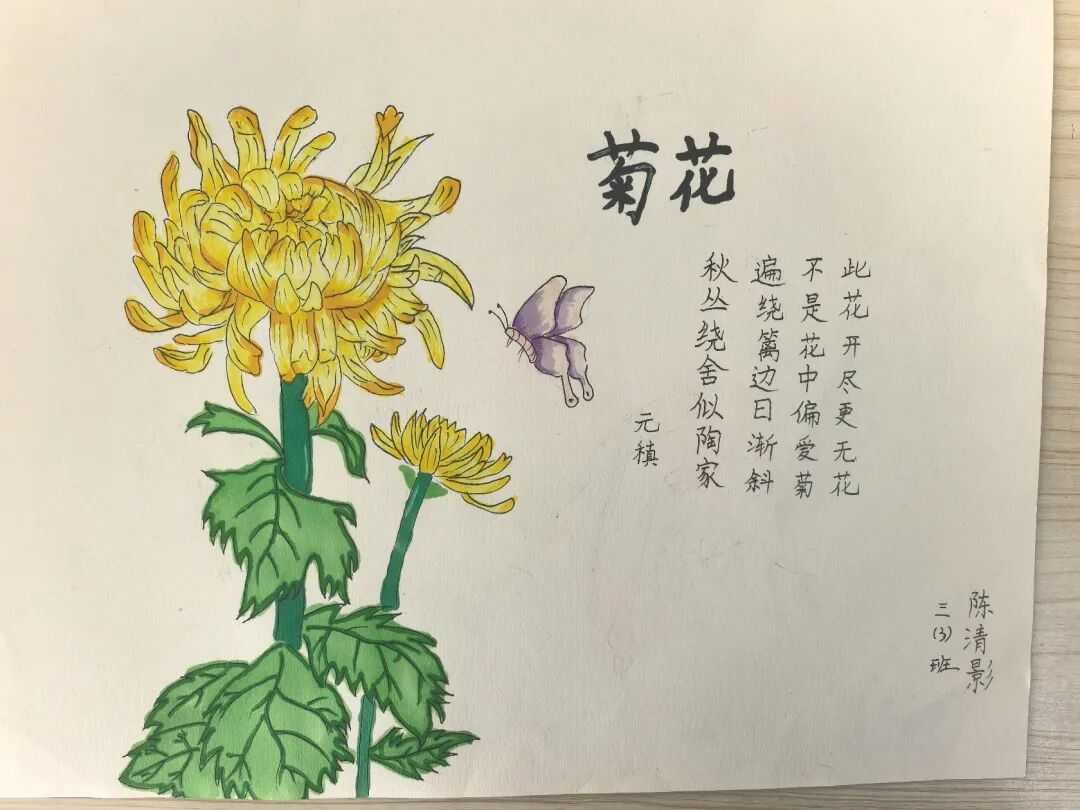 菊花
元稹
秋丛绕舍似陶家
遍绕篱边日渐斜
不是花中偏爱菊
此花开尽更无花
三(3)班
陈清影